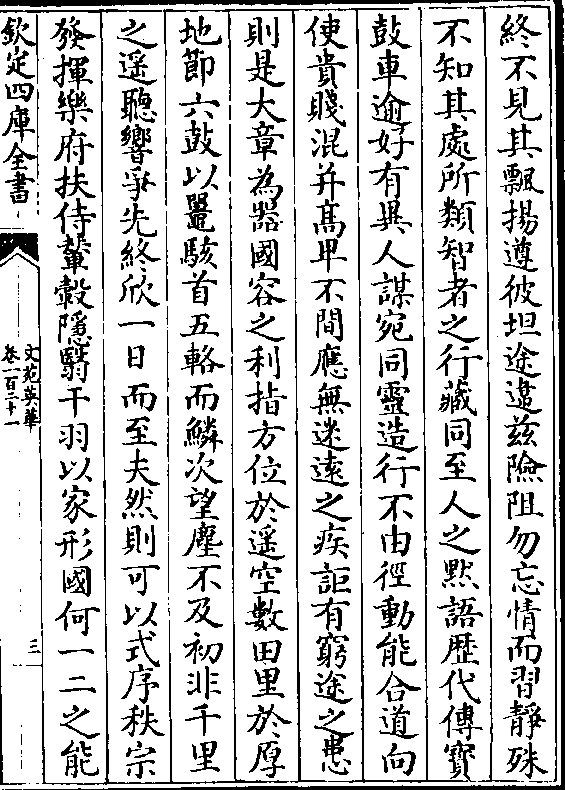 終不見其飄揚遵彼坦途逮兹險阻勿忘情而習靜殊
不知其處所類智者之行藏同至人之黙語歷代傳寳
鼓車逾好有異人謀宛同靈造行不由徑動能合道向
使貴賤混并髙卑不間應無迷遠之疾詎有窮途之患
則是大章為器國容之利指方位於遥空數田里於厚
地節六鼓以鼉駭首五輅而鱗次望塵不及初非千里
之遥聽響爭先終欣一日而至夫然則可以式序秩宗
發揮樂府扶侍輦轂隱翳干羽以家形國何一二之能
欽定四庫全書
文苑英華
卷一百二十一
三